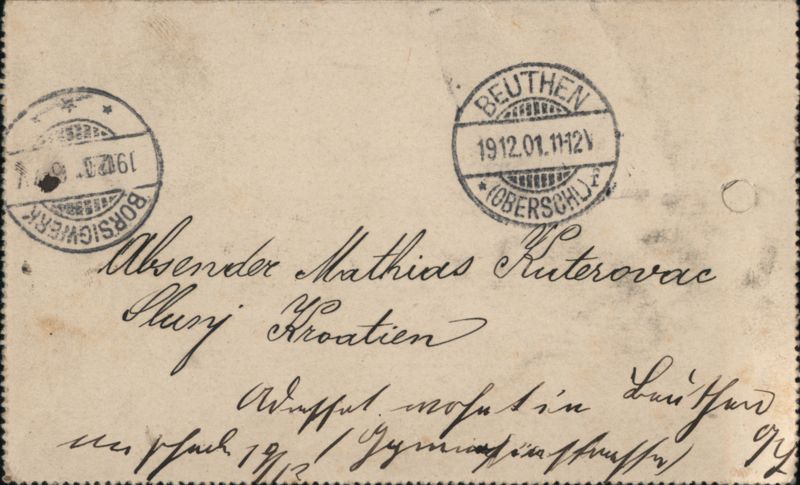 BEUTHEN
19.12.01.11-12V
*(OBERSCHL.) f
BORSIGWERK
Absender Mathias Kuterovac
Slunj Kroatien
Adressat wohnt in Beuthen
19/12 (Gymnasialstrasse)